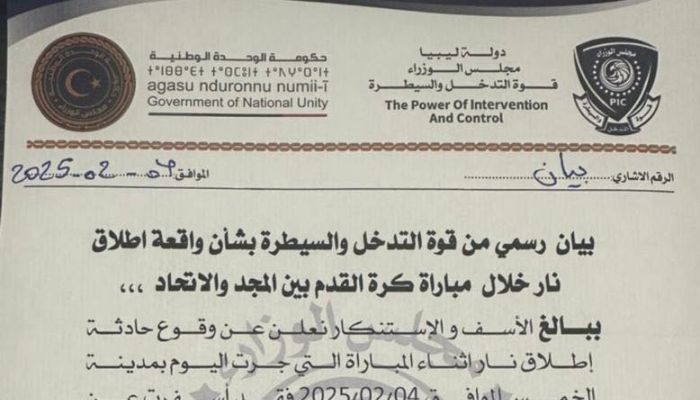 حكومة الوحدة الوطنية
agasu nduronnu numii-ī
Government of National Unity
دولة ليبيا
مجلس الوزراء
قوة التدخل والسيطرة
The Power Of Intervention
And Control
مجلس الوزراء
PIC
الرقم الاشاري: بيان
الموافق: 2025-02-04
بيان رسمي من قوة التدخل والسيطرة بشأن واقعة اطلاق
نار خلال مباراة كرة القدم بين المجد والاتحاد ,,,
ببالغ الأسف والإستنكار نعلن عن وقوع حادثة
إطلاق نار اثناء المباراة التي جرت اليوم بمدينة
الخمس الموافق 2025/02/04 فقد أسفرت عن
مجلس الوزراء